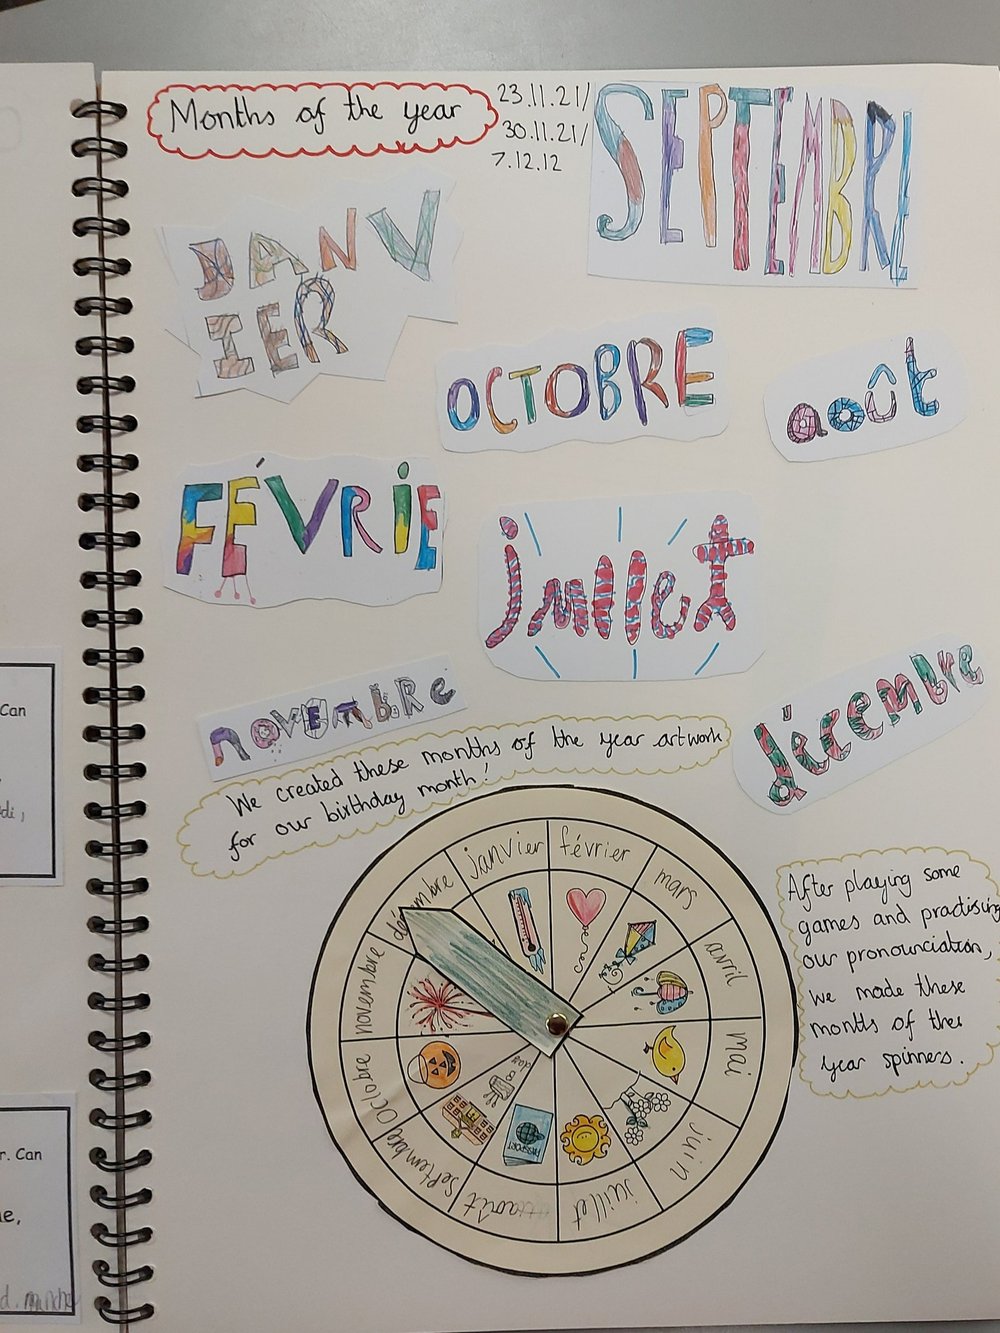 Months of the year
23.11.21/
30.11.21/
7.12.12
SEPTEMBRE
JANV
IER
OCTOBRE
août
FÉVRIE
juillet
novembre
décembre
We created these months of the year artwork
for our birthday month!
janvier
février
mars
avril
mai
juin
juillet
août
septembre
octobre
novembre
décembre
PASSPORT
After playing some
games and practising
our pronounciation,
we made these
months of the
year spinners.
Can
di,
r. Can
e,